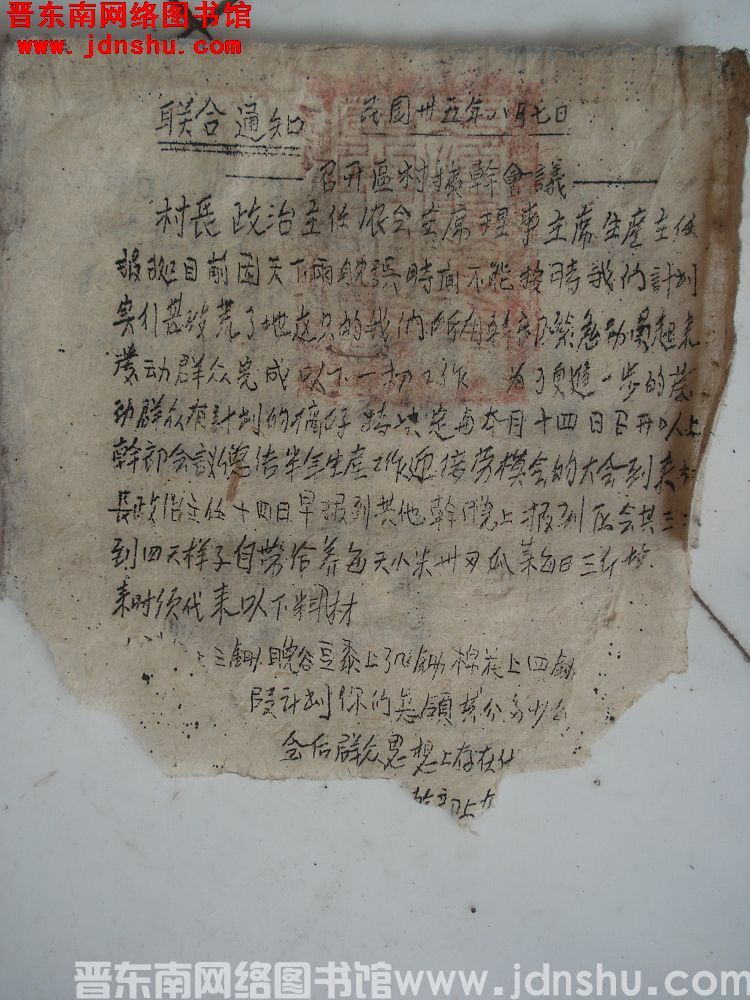 晋东南网络图书馆
www.jdnshu.com
联合通知 民国卅五年八月七日
召开區村 幹會議
村長政治主任农会主席理事主席生產主任
报 目前因天下雨躭誤時间不能按時我们計划
实行甚 荒了地 我们所有幹部 急动員起来
發动群众完成以下一切工作 为了更進一步的發
动群众有計划的搞好 决定 本月十四日召开 以上
幹部会議 结半年生產工作迎接劳模会的大会到来村
長政治主任十四日早报到其他幹 晚上报到 会共三
到四天样子自带给养每天小米卅 瓜菜每日三斤
来时须代来以下料材
三鋤 谷豆黍上 鋤棉花上四鋤
段計划你的 領 多少
会后群众思想上存在什
晋东南网络图书馆www.jdnshu.com